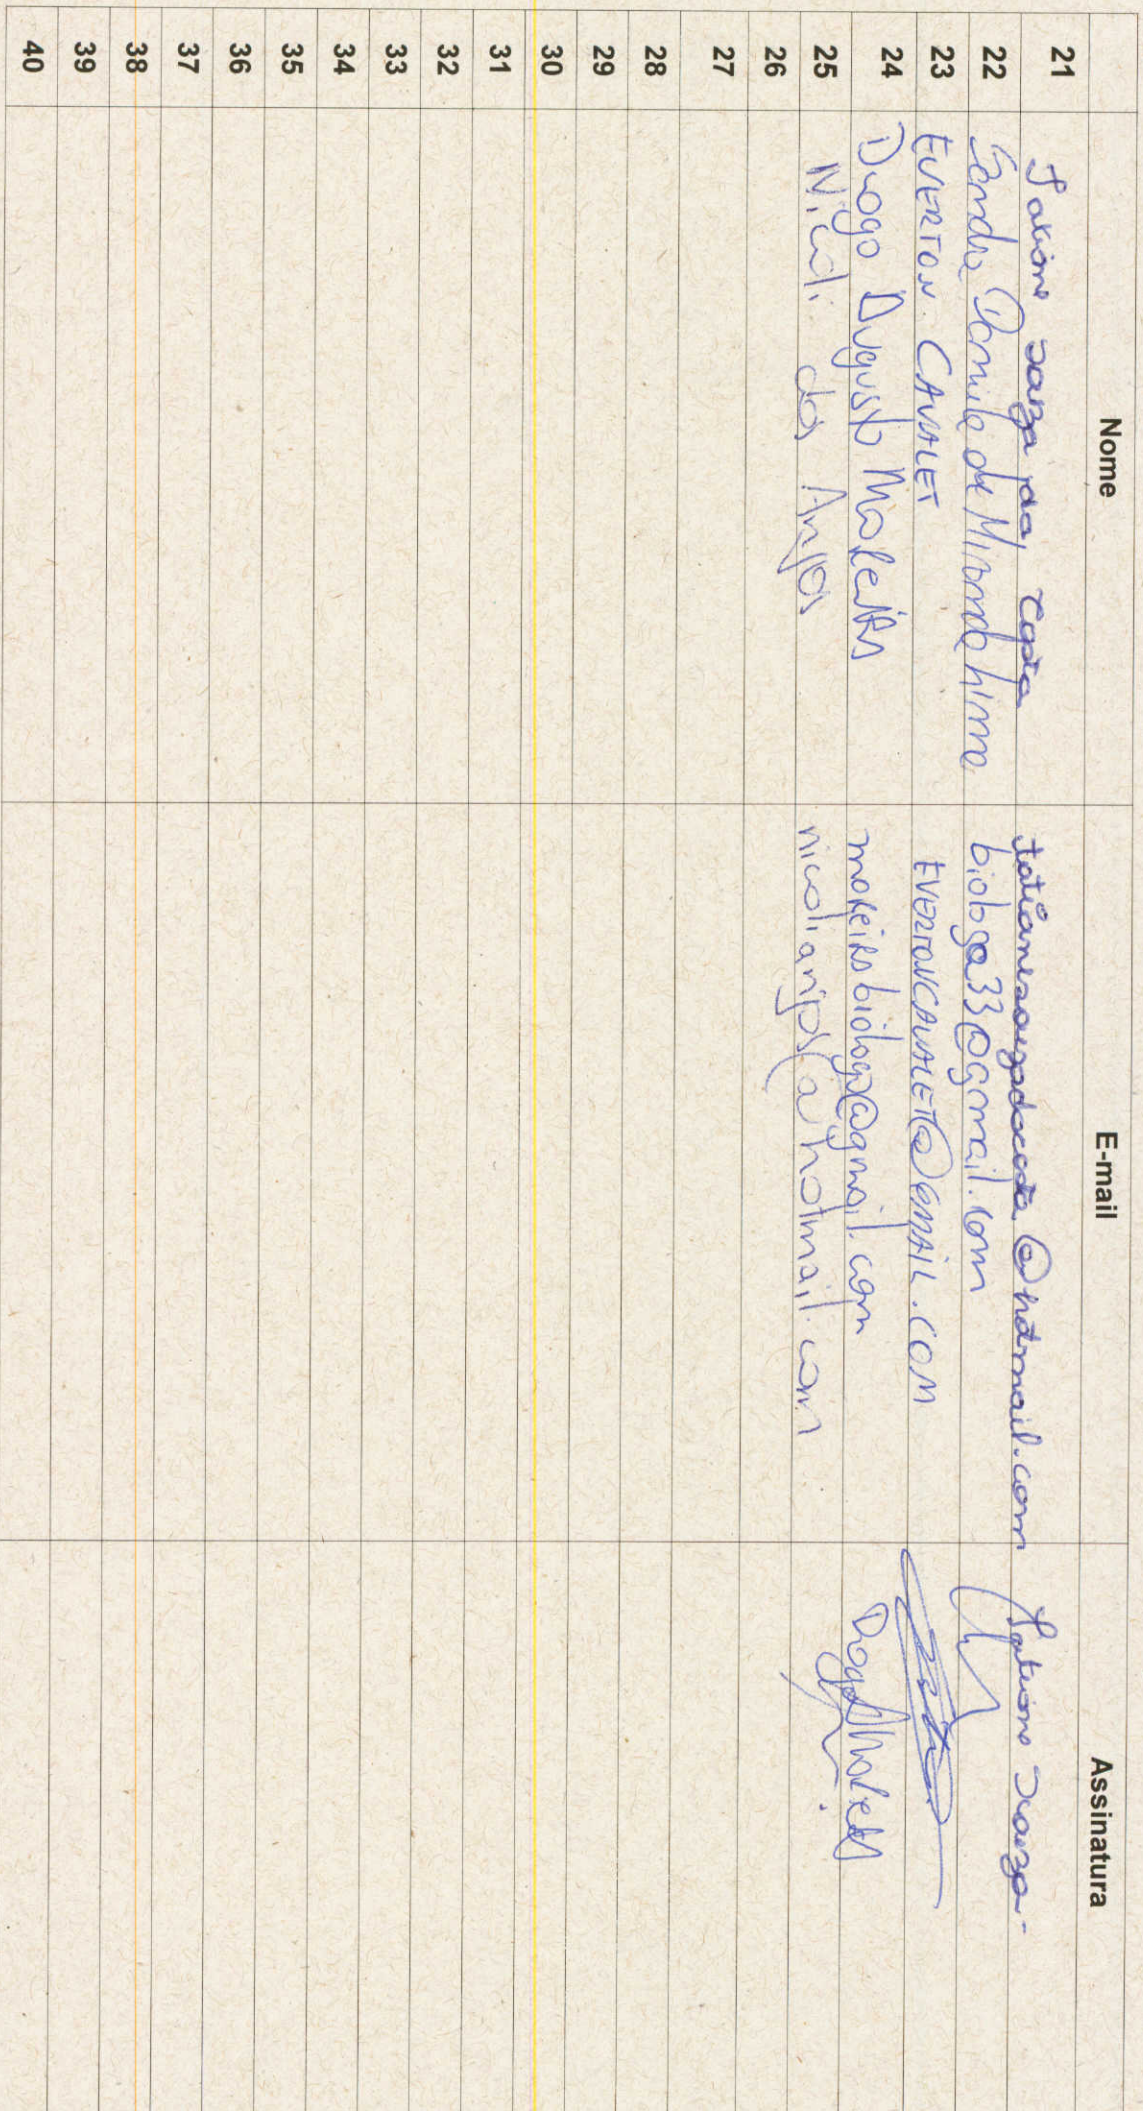 Nome E-mail Assinatura
21 Tatiane Souza da Costa tatianesouzadacosta@hotmail.com Tatiane Souza
22 Sandra Daniela de Miranda Lima biologa33@gmail.com
23 EVERTON CAVALET EVERTONCAVALET@GMAIL.COM
24 Diogo Augusto Moreira moreirabiologo@gmail.com Diogo A Moreira
25 Nicoli dos Anjos nicolianjos@hotmail.com
26
27
28
29
30
31
32
33
34
35
36
37
38
39
40